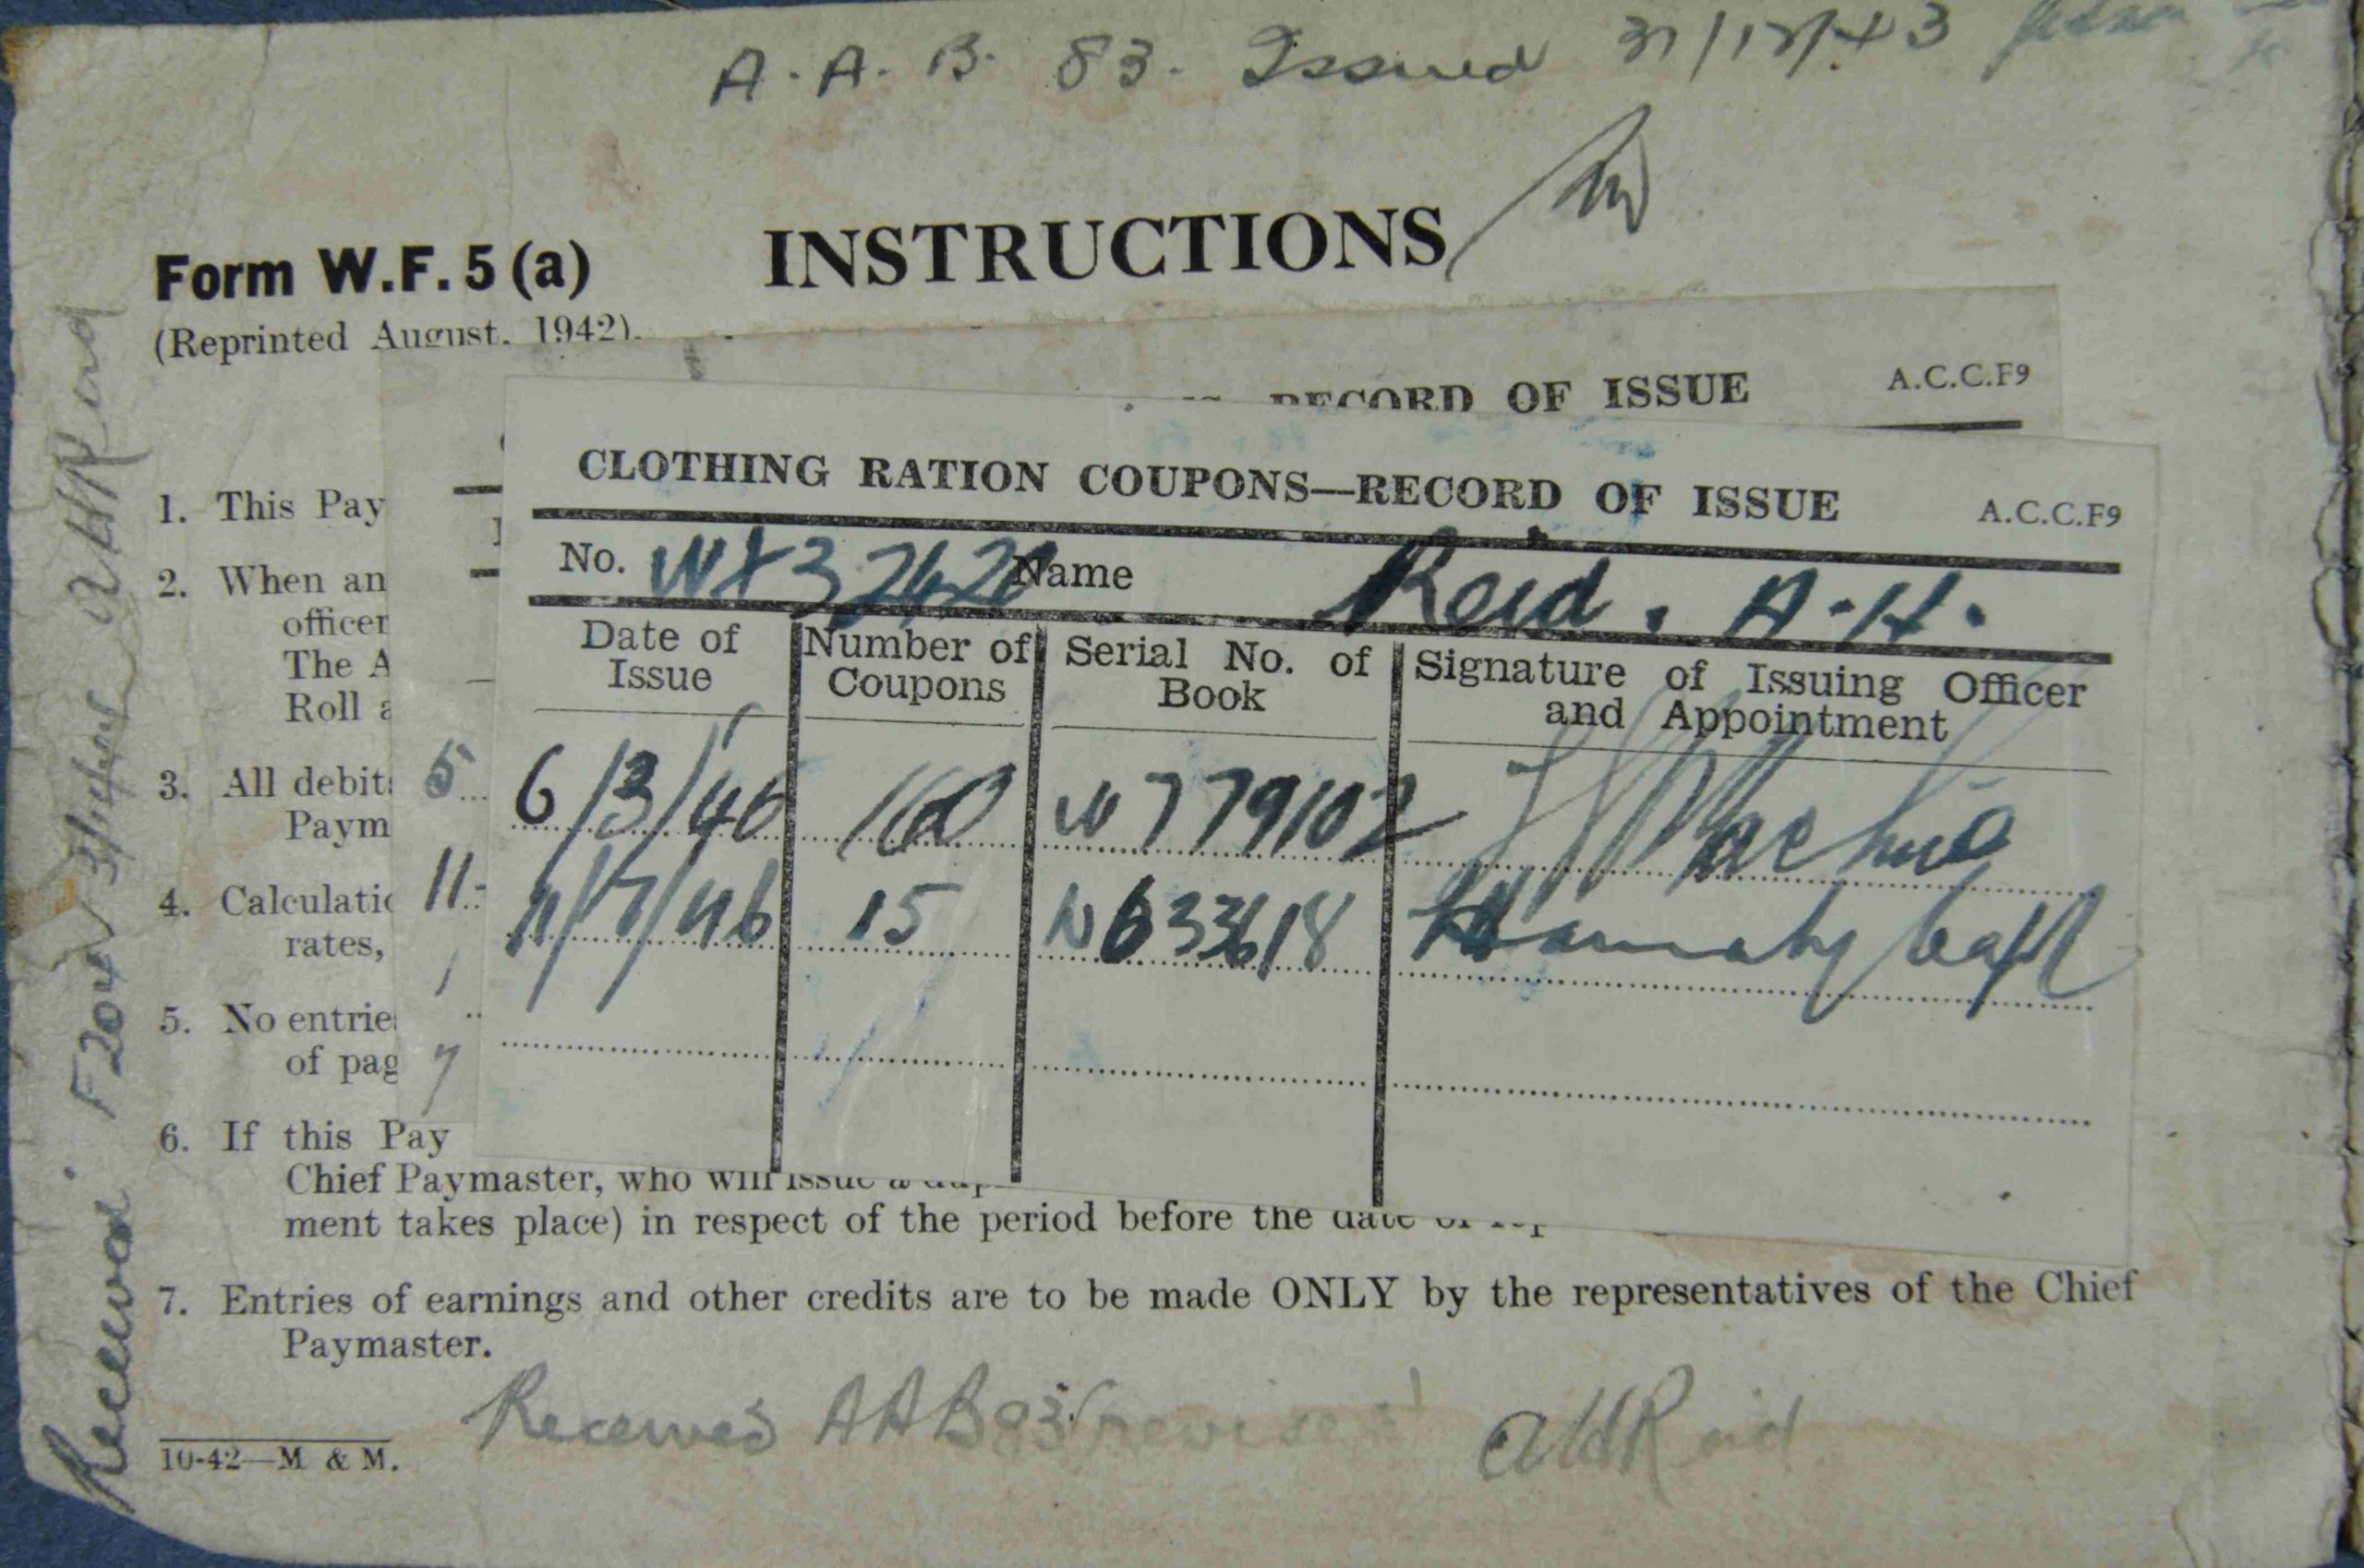 A. A. B. 83. Issued 31/12/43
INSTRUCTIONS
Form W.F. 5 (a)
(Reprinted August, 1942).
RECORD OF ISSUE A.C.C.F9
CLOTHING RATION COUPONS—RECORD OF ISSUE A.C.C.F9
No. WX32420 Name Reid. A.H.
Date of Issue Number of Coupons Serial No. of Book Signature of Issuing Officer and Appointment
6/3/46 W779102
11/7/46 15 N633618 Capt
1. This Pay
2. When an
officer
The A
Roll a
3. All debit
Paym
5
4. Calculatio
rates,
11
5. No entrie
of pag
7
6. If this Pay
Chief Paymaster, who will issue a dup
ment takes place) in respect of the period before the date of rep
7. Entries of earnings and other credits are to be made ONLY by the representatives of the Chief
Paymaster.
Received AAB 83 (revised) AHReid
10-42—M. & M.
Received F204 AHReid